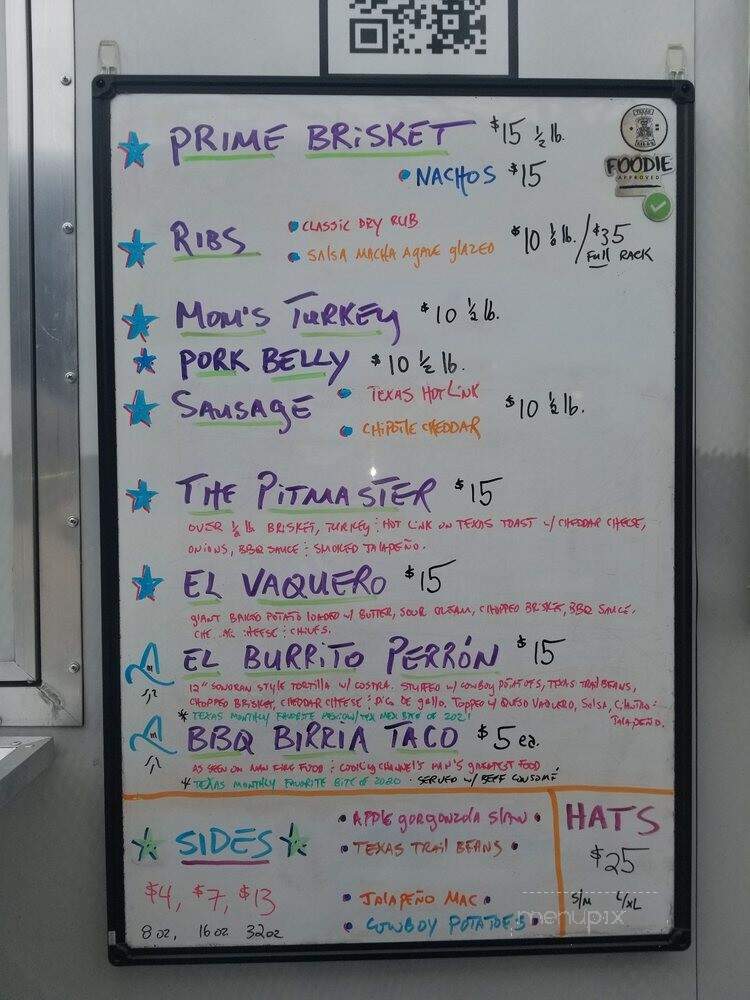 PRIME BRISKET $15 ½ lb.
NACHOS $15
FOODIE
APPROVED
RIBS
CLASSIC DRY RUB
SALSA MACHA AGAVE GLAZED
$10 ½ lb. / $35 FULL RACK
MOM'S TURKEY $10 ½ lb.
PORK BELLY $10 ½ lb.
SAUSAGE
TEXAS HOT LINK
CHIPOTLE CHEDDAR
$10 ½ lb.
THE PITMASTER $15
OVER ½ lb BRISKET, TURKEY : HOT LINK ON TEXAS TOAST w/ CHEDDAR CHEESE,
ONIONS, BBQ SAUCE : SMOKED JALAPEÑO.
EL VAQUERO $15
GIANT BAKED POTATO LOADED w/ BUTTER, SOUR CREAM, CHOPPED BRISKET, BBQ SAUCE,
CHEESE : CHIVES.
EL BURRITO PERRÓN $15
12" SONORAN STYLE TORTILLA w/ COSTRA. STUFFED w/ COWBOY POTATOES, TEXAS TRAIL BEANS,
CHOPPED BRISKET, CHEDDAR CHEESE : PICO DE GALLO. TOPPED w/ QUESO VAQUERO, SALSA, CILANTRO :
JALAPEÑO.
* TEXAS MONTHLY FAVORITE MEXICAN/TEX MEX BITE OF 2021
BBQ BIRRIA TACO $5 ea.
AS SEEN ON MAN FIRE FOOD : COOKING CHANNEL'S MAN'S GREATEST FOOD
* TEXAS MONTHLY FAVORITE BITE OF 2020 · SERVED w/ BEEF CONSOMÉ
SIDES
$4, $7, $13
8 oz, 16 oz 32 oz
• APPLE GORGONZOLA SLAW •
• TEXAS TRAIL BEANS •
• JALAPEÑO MAC •
• COWBOY POTATOES •
HATS
$25
S/M L/XL
menupix